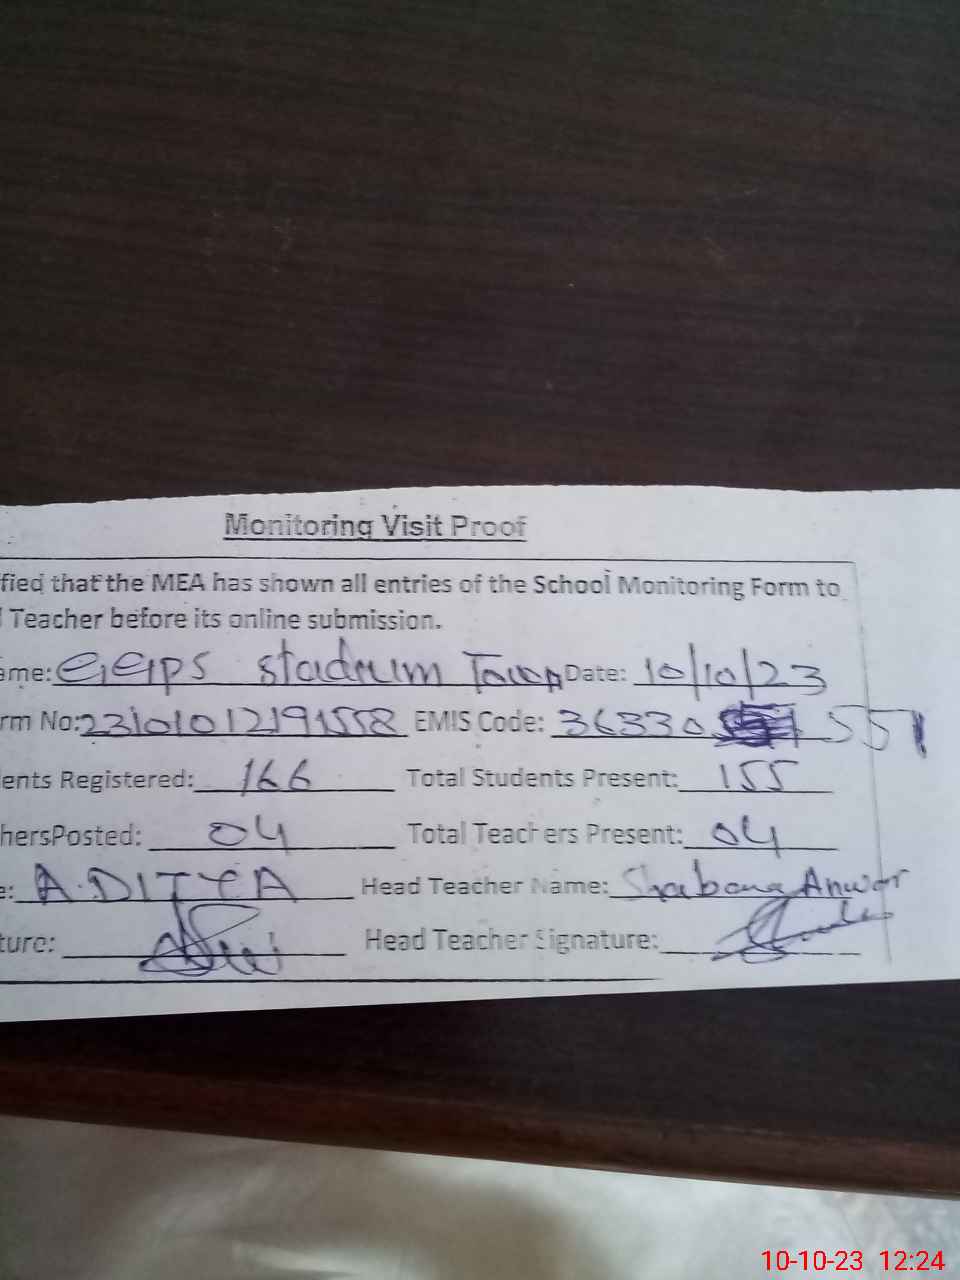 Monitoring Visit Proof
fied that the MEA has shown all entries of the School Monitoring Form to
Teacher before its online submission.
ame: GGPS stadium Town Date: 10/10/23
rm No: 23101012191558 EMIS Code: 36330 551
ents Registered: 166 Total Students Present: 155
hersPosted: 04 Total Teachers Present: 04
e: ADITYA Head Teacher Name: Shabana Anwar
ture: Head Teacher Signature:
10-10-23 12:24